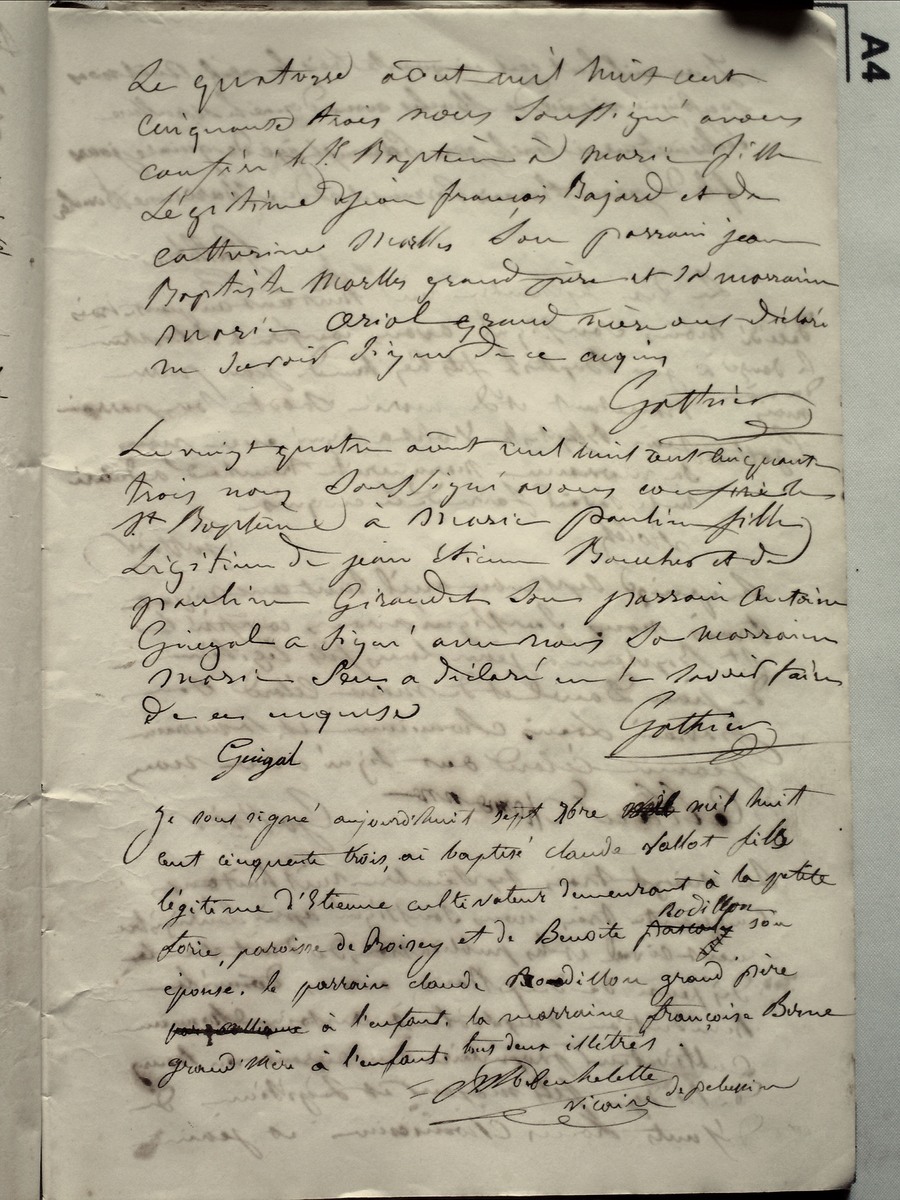 A4
Le quatorze août mil huit cent
cinquante trois nous soussigné avons
conféré le St Baptême à marie fille
Légitime de jean françois Bajard et de
catherine Marlles son parrain jean
Baptiste Marlles grand père et sa marraine
marie Oriol grand mère ont déclaré
ne savoir signer de ce enquis
Gothier
Le vingt quatre août mil huit cent cinquante
trois nous soussigné avons conféré le
St Baptême à Marie pauline fille
Légitime de jean étienne Boucher et de
pauline Giraudet son parrain Antoine
Guigal a signé avec nous sa marraine
marie a déclaré ne le savoir faire
de ce enquise
Gothier
Guigal
Je sous signé aujourdhuit sept 7bre mil huit
cent cinquante trois, ai baptisé claude Vallot fille
légitime d'Etienne cultivateur demeurant à la petite
forie, paroisse de Roisey et de Benoite Rodillon son
épouse. le parrain claude Rodillon grand père
à l'enfant. la marraine françoise Berne
grand'mère à l'enfant. tous deux illétrés.
vicaire de pelussin